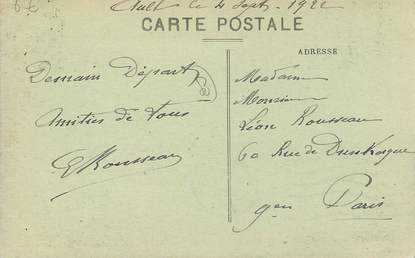 Ault le 4 Sept. 1922
CARTE POSTALE
ADRESSE
Demain Départ
Amitiés de tous
E Rousseau
Madame
Monsieur
Léon Rousseau
60 Rue de Dunkerque
Paris